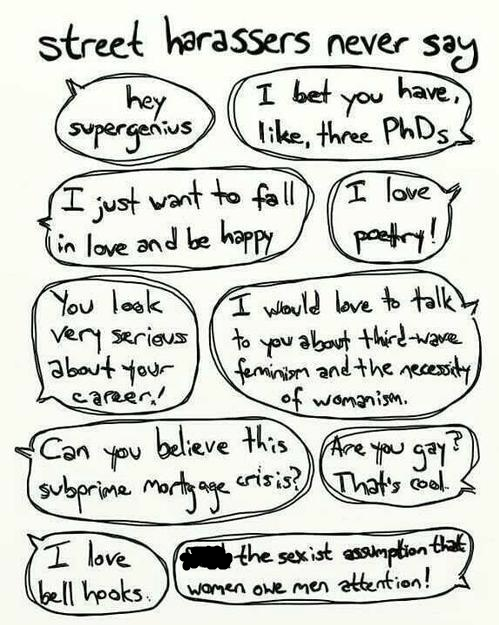 street harassers never say
hey
supergenius
I bet you have,
like, three PhDs
I just want to fall
in love and be happy
I love
poetry!
You look
very serious
about your
career!
I would love to talk
to you about third-wave
feminism and the necessity
of womanism.
Can you believe this
subprime mortgage crisis?
Are you gay?
That's cool.
I love
bell hooks.
the sexist assumption that
women owe men attention!